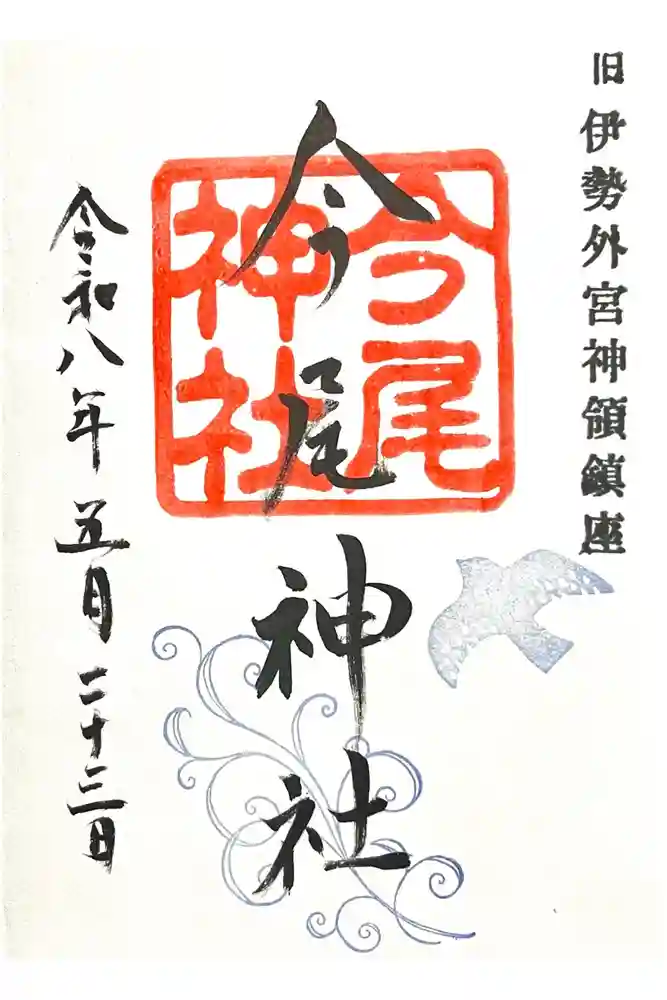 旧伊勢外宮神領鎮座
今尾神社
今尾神社
令和八年五月二十三日